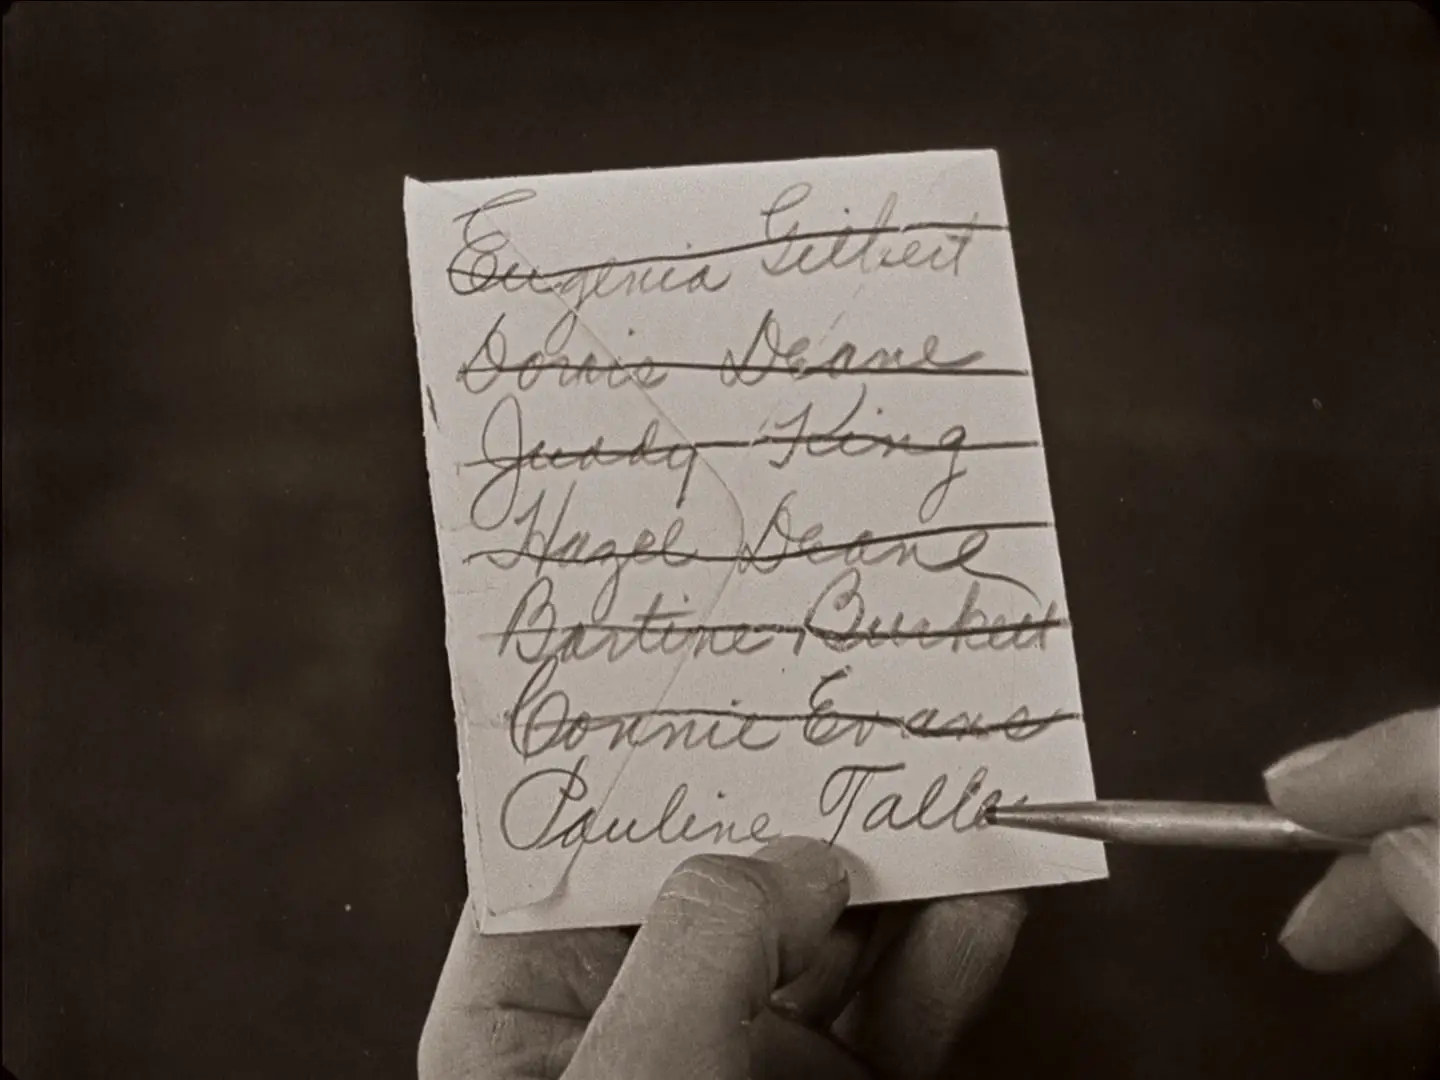 Eugenia Gilbert
Doris Deane
Juddy King
Hazel Deane
Bartine Burkett
Connie Evans
Pauline